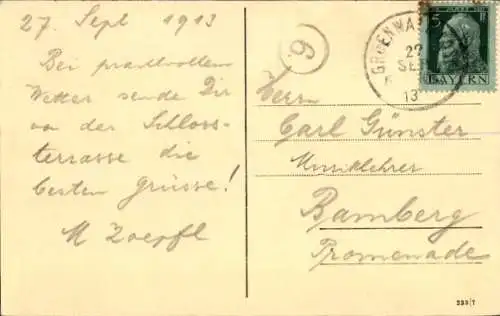 27. Sept 1913
Bei prachtvollem
Wetter sende Dir
von der Schloss-
terrasse die
besten Grüsse!
M Zoepfl
6
GRUENWA
27
SEP
13
5 Pf
BAYERN
Herrn
Carl Günster
Musiklehrer
Bamberg
Promenade
233/7